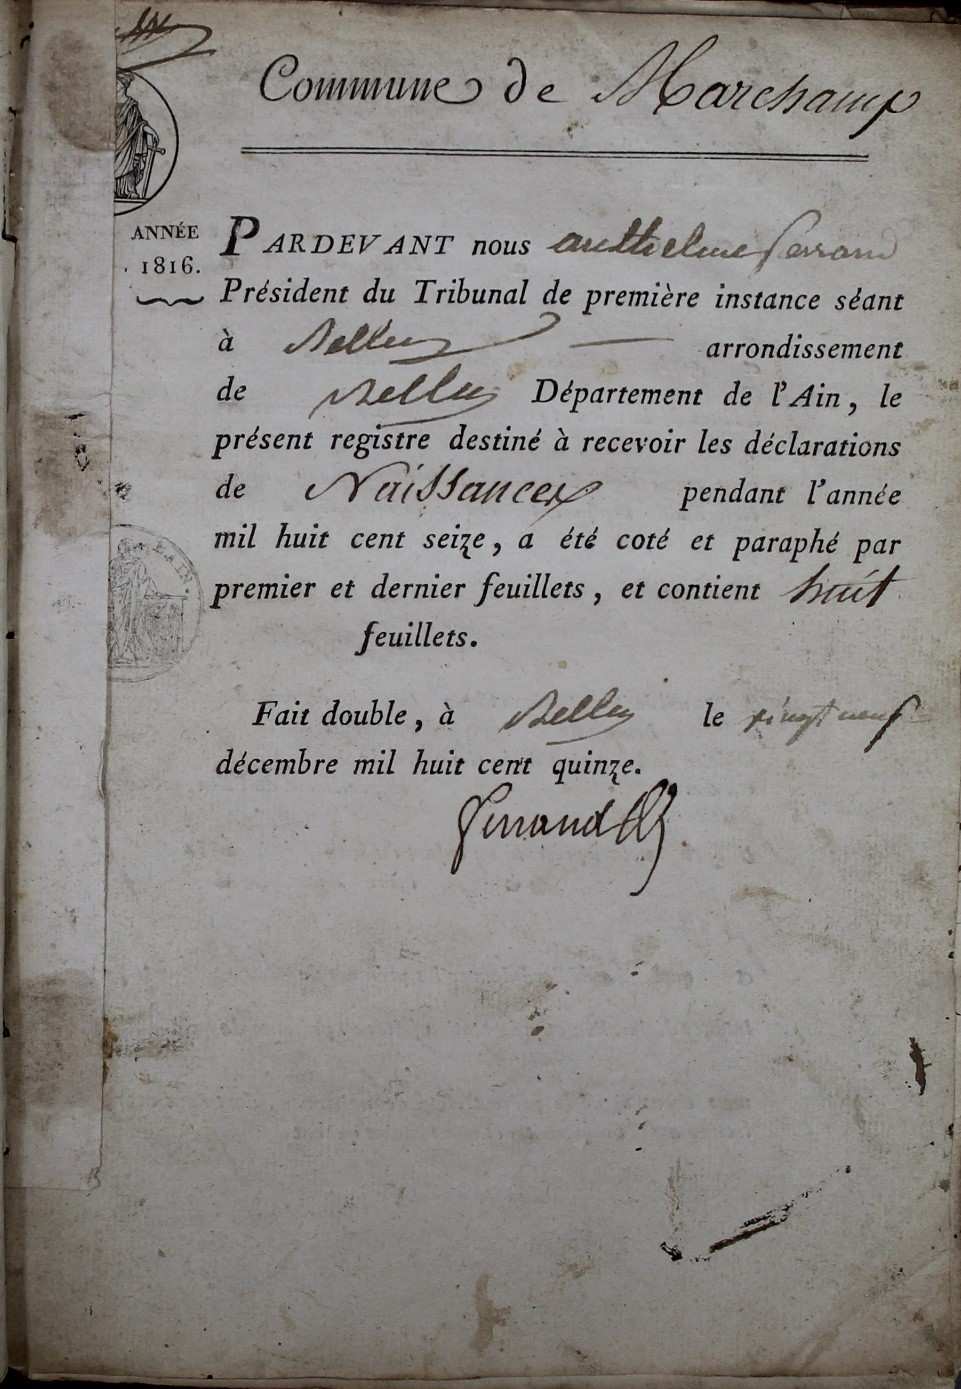 Commune de Marchamp
ANNÉE
1816.
PARDEVANT nous anthelme ferrand
Président du Tribunal de première instance séant
à Belley arrondissement
de Belley Département de l'Ain, le
présent registre destiné à recevoir les déclarations
de Naissances pendant l'année
mil huit cent seize, a été coté et paraphé par
premier et dernier feuillets, et contient huit
feuillets.
Fait double, à Belley le vingt neuf
décembre mil huit cent quinze.
ferrand
AIN.